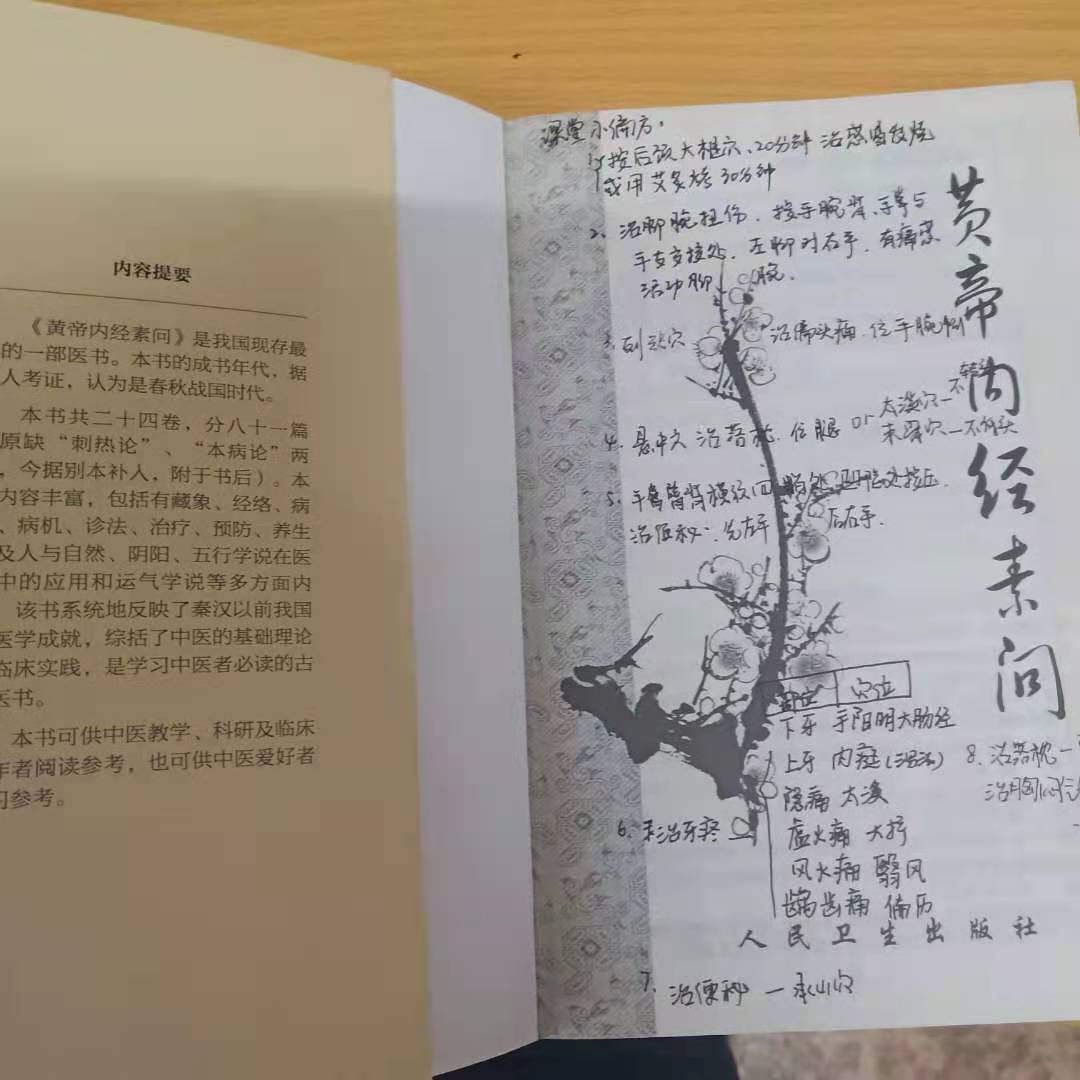 内容提要
《黄帝内经素问》是我国现存最
的一部医书。本书的成书年代，据
人考证，认为是春秋战国时代。
本书共二十四卷，分八十一篇
原缺“刺热论”、“本病论”两
，今据别本补入，附于书后）。本
内容丰富，包括有藏象、经络、病
、病机、诊法、治疗、预防、养生
及人与自然、阴阳、五行学说在医
中的应用和运气学说等多方面内
该书系统地反映了秦汉以前我国
医学成就，综括了中医的基础理论
临床实践，是学习中医者必读的古
医书。
本书可供中医教学、科研及临床
作者阅读参考，也可供中医爱好者
习参考。
课堂小偏方：
1、按后颈大椎穴、20分钟 治感冒发烧
或用艾灸 30分钟
2、治脚腕扭伤．按手腕背、手掌与
手交接处．左脚对右手．有痛感
活动脚腕．
3、列缺穴 治偏头痛．位手腕侧
4、悬中穴 治落枕．位腿 or 太溪穴一不转头
束骨穴一不低头
5、横纹 凹陷处按压．
治便秘：先左手 后右手．
部位 穴位
下牙 手阳明大肠经
上牙 内庭
隐痛 太溪
虚火痛 大抒
风火痛 翳风
龋齿痛 偏历
6、治牙疼
7、治便秘 一 承山穴
8、治落枕一
治胸
黄帝内经素问
人民卫生出版社